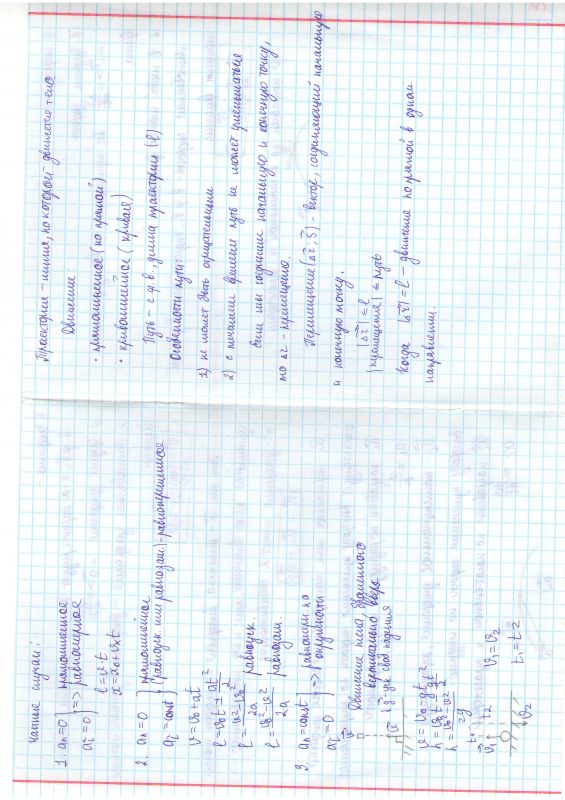 Траектория – линия, по которой движется тело
Движение:
· прямолинейное (по прямой)
· криволинейное (кривая)
Путь – с.ф.в., длина траектории (l)
Особенности пути:
1) не может быть отрицательным
2) с течением времени путь не может уменьшаться
если мы соединим начальную и конечную точку,
то Δr – перемещение.
Перемещение (Δr⃗; S⃗) – вектор, соединяющий начальную
и конечную точку.
|Δr⃗| ≤ l
|перемещение| ≤ путь
Когда |Δr⃗| = l – движение по прямой в одном
направлении
частные случаи:
1. aₙ=0 } прямолинейное
aτ=0 } => равномерное
l = υt
x = x₀ + υₓt
2. aₙ=0 } прямолинейное
aτ=const } (равноуск или равнозам) – равнопеременное
υ = υ₀ ± at
l = υ₀t ± at²/2
l = (υ²-υ₀²)/2a равноуск.
l = (υ₀²-υ²)/2a равнозам.
3. aₙ=const } => равномерн по
aτ=0 } окружности
Движение тела, брошенного
вертикально вверх
g-уск. своб. падения
υ = υ₀ - gt
h = υ₀t - gt²/2
h = (υ₀²-υ²)/2g
t₁ t₂
υ₁ υ₂
υ₁ = υ₂
t₁ = t₂